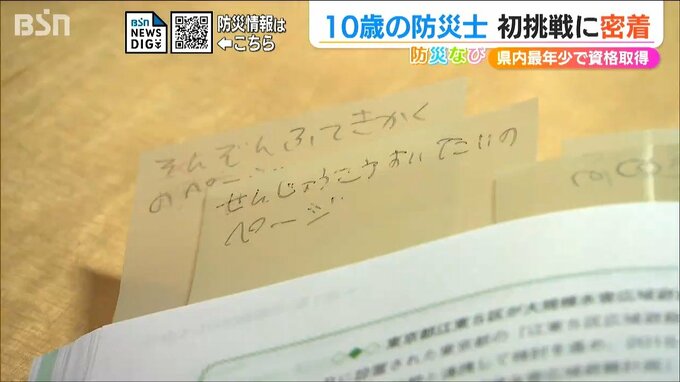 BSN
BSN
NEWS
DIG
防災情報は
←こちら
10歳の防災士 初挑戦に密着
防災なび
県内最年少で資格取得
そんぞんふてきかく
のページ
せんじょうこうすいたいの
ページ
東京都江東5区が大規模水害広域避難
に設置された東京都の「江東5区広域避難
と連携して検討を進め、2018